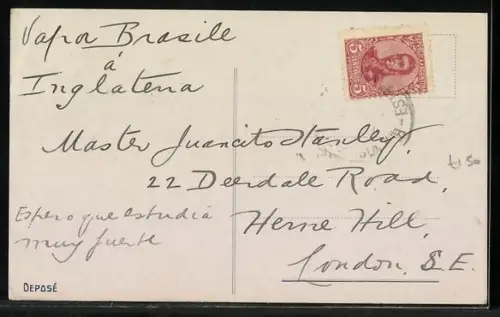 Vapor Brasile
á
Inglaterra
Master Juancito Stanley,
22 Deerdale Road,
Herne Hill,
London, S.E.
Espero que estudiá
muy fuerte
DEPOSÉ
5 5